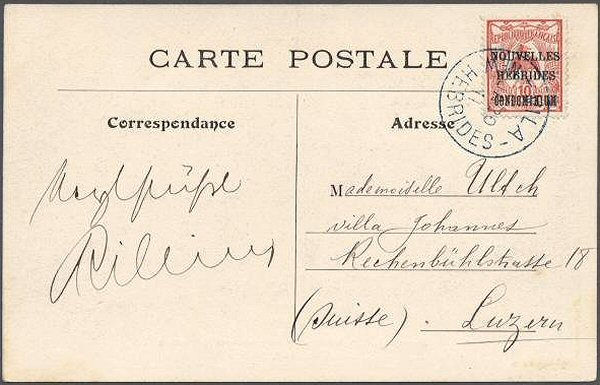 CARTE POSTALE
RÉPUBLIQUE FRANÇAISE
NOUVELLES
HÉBRIDES
10
CONDOMINIUM
VILA
HEBRIDES
Correspondance
Adresse
Mademoiselle Ulrich
villa Johannes
Rechenbühlstrasse 18
(Suisse). Luzern